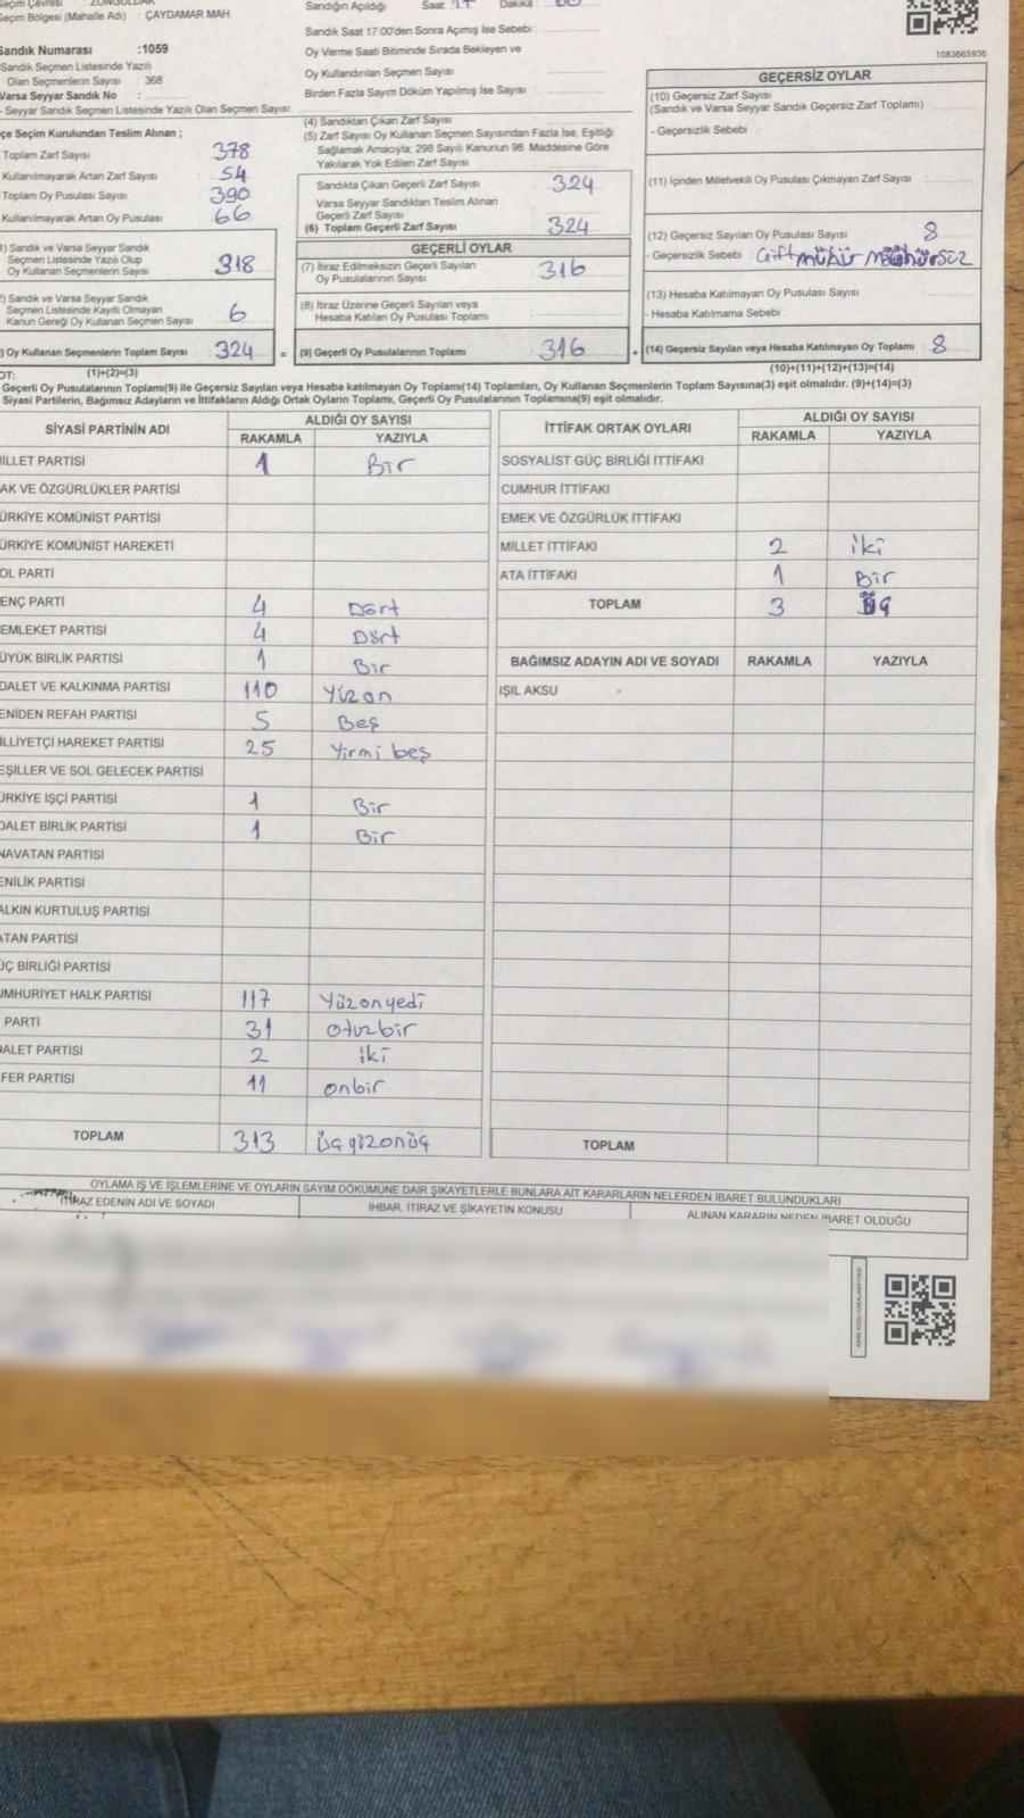 Seçim Çevresi : ZONGULDAK
Seçim Bölgesi (Mahalle Adı) : ÇAYDAMAR MAH
Sandık Numarası :1059
Sandık Seçmen Listesinde Yazılı
Olan Seçmenlerin Sayısı : 368
Varsa Seyyar Sandık No :
- Seyyar Sandık Seçmen Listesinde Yazılı Olan Seçmen Sayısı:
çe Seçim Kurulundan Teslim Alınan ;
Toplam Zarf Sayısı 378
Kullanılmayarak Artan Zarf Sayısı 54
Toplam Oy Pusulası Sayısı 390
Kullanılmayarak Artan Oy Pusulası 66
1) Sandık ve Varsa Seyyar Sandık
Seçmen Listesinde Yazılı Olup
Oy Kullanan Seçmenlerin Sayısı 318
2) Sandık ve Varsa Seyyar Sandık
Seçmen Listesinde Kayıtlı Olmayan
Kanun Gereği Oy Kullanan Seçmen Sayısı 6
) Oy Kullanan Seçmenlerin Toplam Sayısı 324
(1)+(2)=(3)
Sandığın Açıldığı Saat 17 Dakika 00
Sandık Saat 17:00'den Sonra Açımış İse Sebebi
Oy Verme Saati Bitiminde Sırada Bekleyen ve
Oy Kullandırılan Seçmen Sayısı
Birden Fazla Sayım Döküm Yapılmış İse Sayısı
(4) Sandıktan Çıkan Zarf Sayısı
(5) Zarf Sayısı Oy Kullanan Seçmen Sayısından Fazla İse, Eşitliği
Sağlamak Amacıyla; 298 Sayılı Kanunun 98. Maddesine Göre
Yakılarak Yok Edilen Zarf Sayısı
Sandıkta Çıkan Geçerli Zarf Sayısı 324
Varsa Seyyar Sandıktan Teslim Alınan
Geçerli Zarf Sayısı
(6) Toplam Geçerli Zarf Sayısı 324
GEÇERLİ OYLAR
(7) İtiraz Edilmeksizin Geçerli Sayılan
Oy Pusulalarının Sayısı 316
(8) İtiraz Üzerine Geçerli Sayılan veya
Hesaba Katılan Oy Pusulası Toplamı
= (9) Geçerli Oy Pusulalarının Toplamı 316
1083665936
GEÇERSİZ OYLAR
(10) Geçersiz Zarf Sayısı
(Sandık ve Varsa Seyyar Sandık Geçersiz Zarf Toplamı)
- Geçersizlik Sebebi
(11) İçinden Milletvekili Oy Pusulası Çıkmayan Zarf Sayısı
(12) Geçersiz Sayılan Oy Pusulası Sayısı 8
- Geçersizlik Sebebi Çift mühür
(13) Hesaba Katılmayan Oy Pusulası Sayısı
- Hesaba Katılmama Sebebi
+ (14) Geçersiz Sayılan veya Hesaba Katılmayan Oy Toplamı 8
(10)+(11)+(12)+(13)=(14)
OT:
Geçerli Oy Pusulalarının Toplamı(9) ile Geçersiz Sayılan veya Hesaba katılmayan Oy Toplamı(14) Toplamları, Oy Kullanan Seçmenlerin Toplam Sayısına(3) eşit olmalıdır. (9)+(14)=(3)
Siyasi Partilerin, Bağımsız Adayların ve İttifakların Aldığı Ortak Oyların Toplamı, Geçerli Oy Pusulalarının Toplamına(9) eşit olmalıdır.
SİYASİ PARTİNİN ADI ALDIĞI OY SAYISI
RAKAMLA YAZIYLA
İLLET PARTİSİ 1 Bir
AK VE ÖZGÜRLÜKLER PARTİSİ
ÜRKİYE KOMÜNİST PARTİSİ
ÜRKİYE KOMÜNİST HAREKETİ
OL PARTİ
ENÇ PARTİ 4 Dört
EMLEKET PARTİSİ 4 Dört
ÜYÜK BİRLİK PARTİSİ 1 Bir
DALET VE KALKINMA PARTİSİ 110 Yüzon
ENİDEN REFAH PARTİSİ 5 Beş
İLLİYETÇİ HAREKET PARTİSİ 25 Yirmi beş
EŞİLLER VE SOL GELECEK PARTİSİ
ÜRKİYE İŞÇİ PARTİSİ 1 Bir
DALET BİRLİK PARTİSİ 1 Bir
NAVATAN PARTİSİ
ENİLİK PARTİSİ
ALKIN KURTULUŞ PARTİSİ
ATAN PARTİSİ
ÜÇ BİRLİĞİ PARTİSİ
UMHURİYET HALK PARTİSİ 117 Yüzonyedi
PARTİ 31 otuzbir
DALET PARTİSİ 2 iki
FER PARTİSİ 11 onbir
TOPLAM 313 üçyüzonüç
İTTİFAK ORTAK OYLARI ALDIĞI OY SAYISI
RAKAMLA YAZIYLA
SOSYALİST GÜÇ BİRLİĞİ İTTİFAKI
CUMHUR İTTİFAKI
EMEK VE ÖZGÜRLÜK İTTİFAKI
MİLLET İTTİFAKI 2 iki
ATA İTTİFAKI 1 Bir
TOPLAM 3 üç
BAĞIMSIZ ADAYIN ADI VE SOYADI RAKAMLA YAZIYLA
IŞIL AKSU
TOPLAM
OYLAMA İŞ VE İŞLEMLERİNE VE OYLARIN SAYIM DÖKÜMÜNE DAİR ŞİKAYETLERLE BUNLARA AİT KARARLARIN NELERDEN İBARET BULUNDUKLARI
İTİRAZ EDENİN ADI VE SOYADI İHBAR, İTİRAZ VE ŞİKAYETİN KONUSU ALINAN KARARIN NEDEN İBARET OLDUĞU